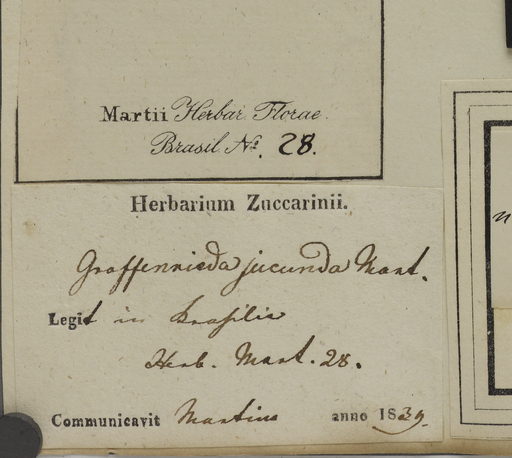 Martii Herbar. Florae
Brasil Nº. 28.
Herbarium Zuccarinii.
Graffenrieda jucunda Mart.
Legit in Brasilia
Herb. Mart. 28.
Communicavit Martius anno 1839.